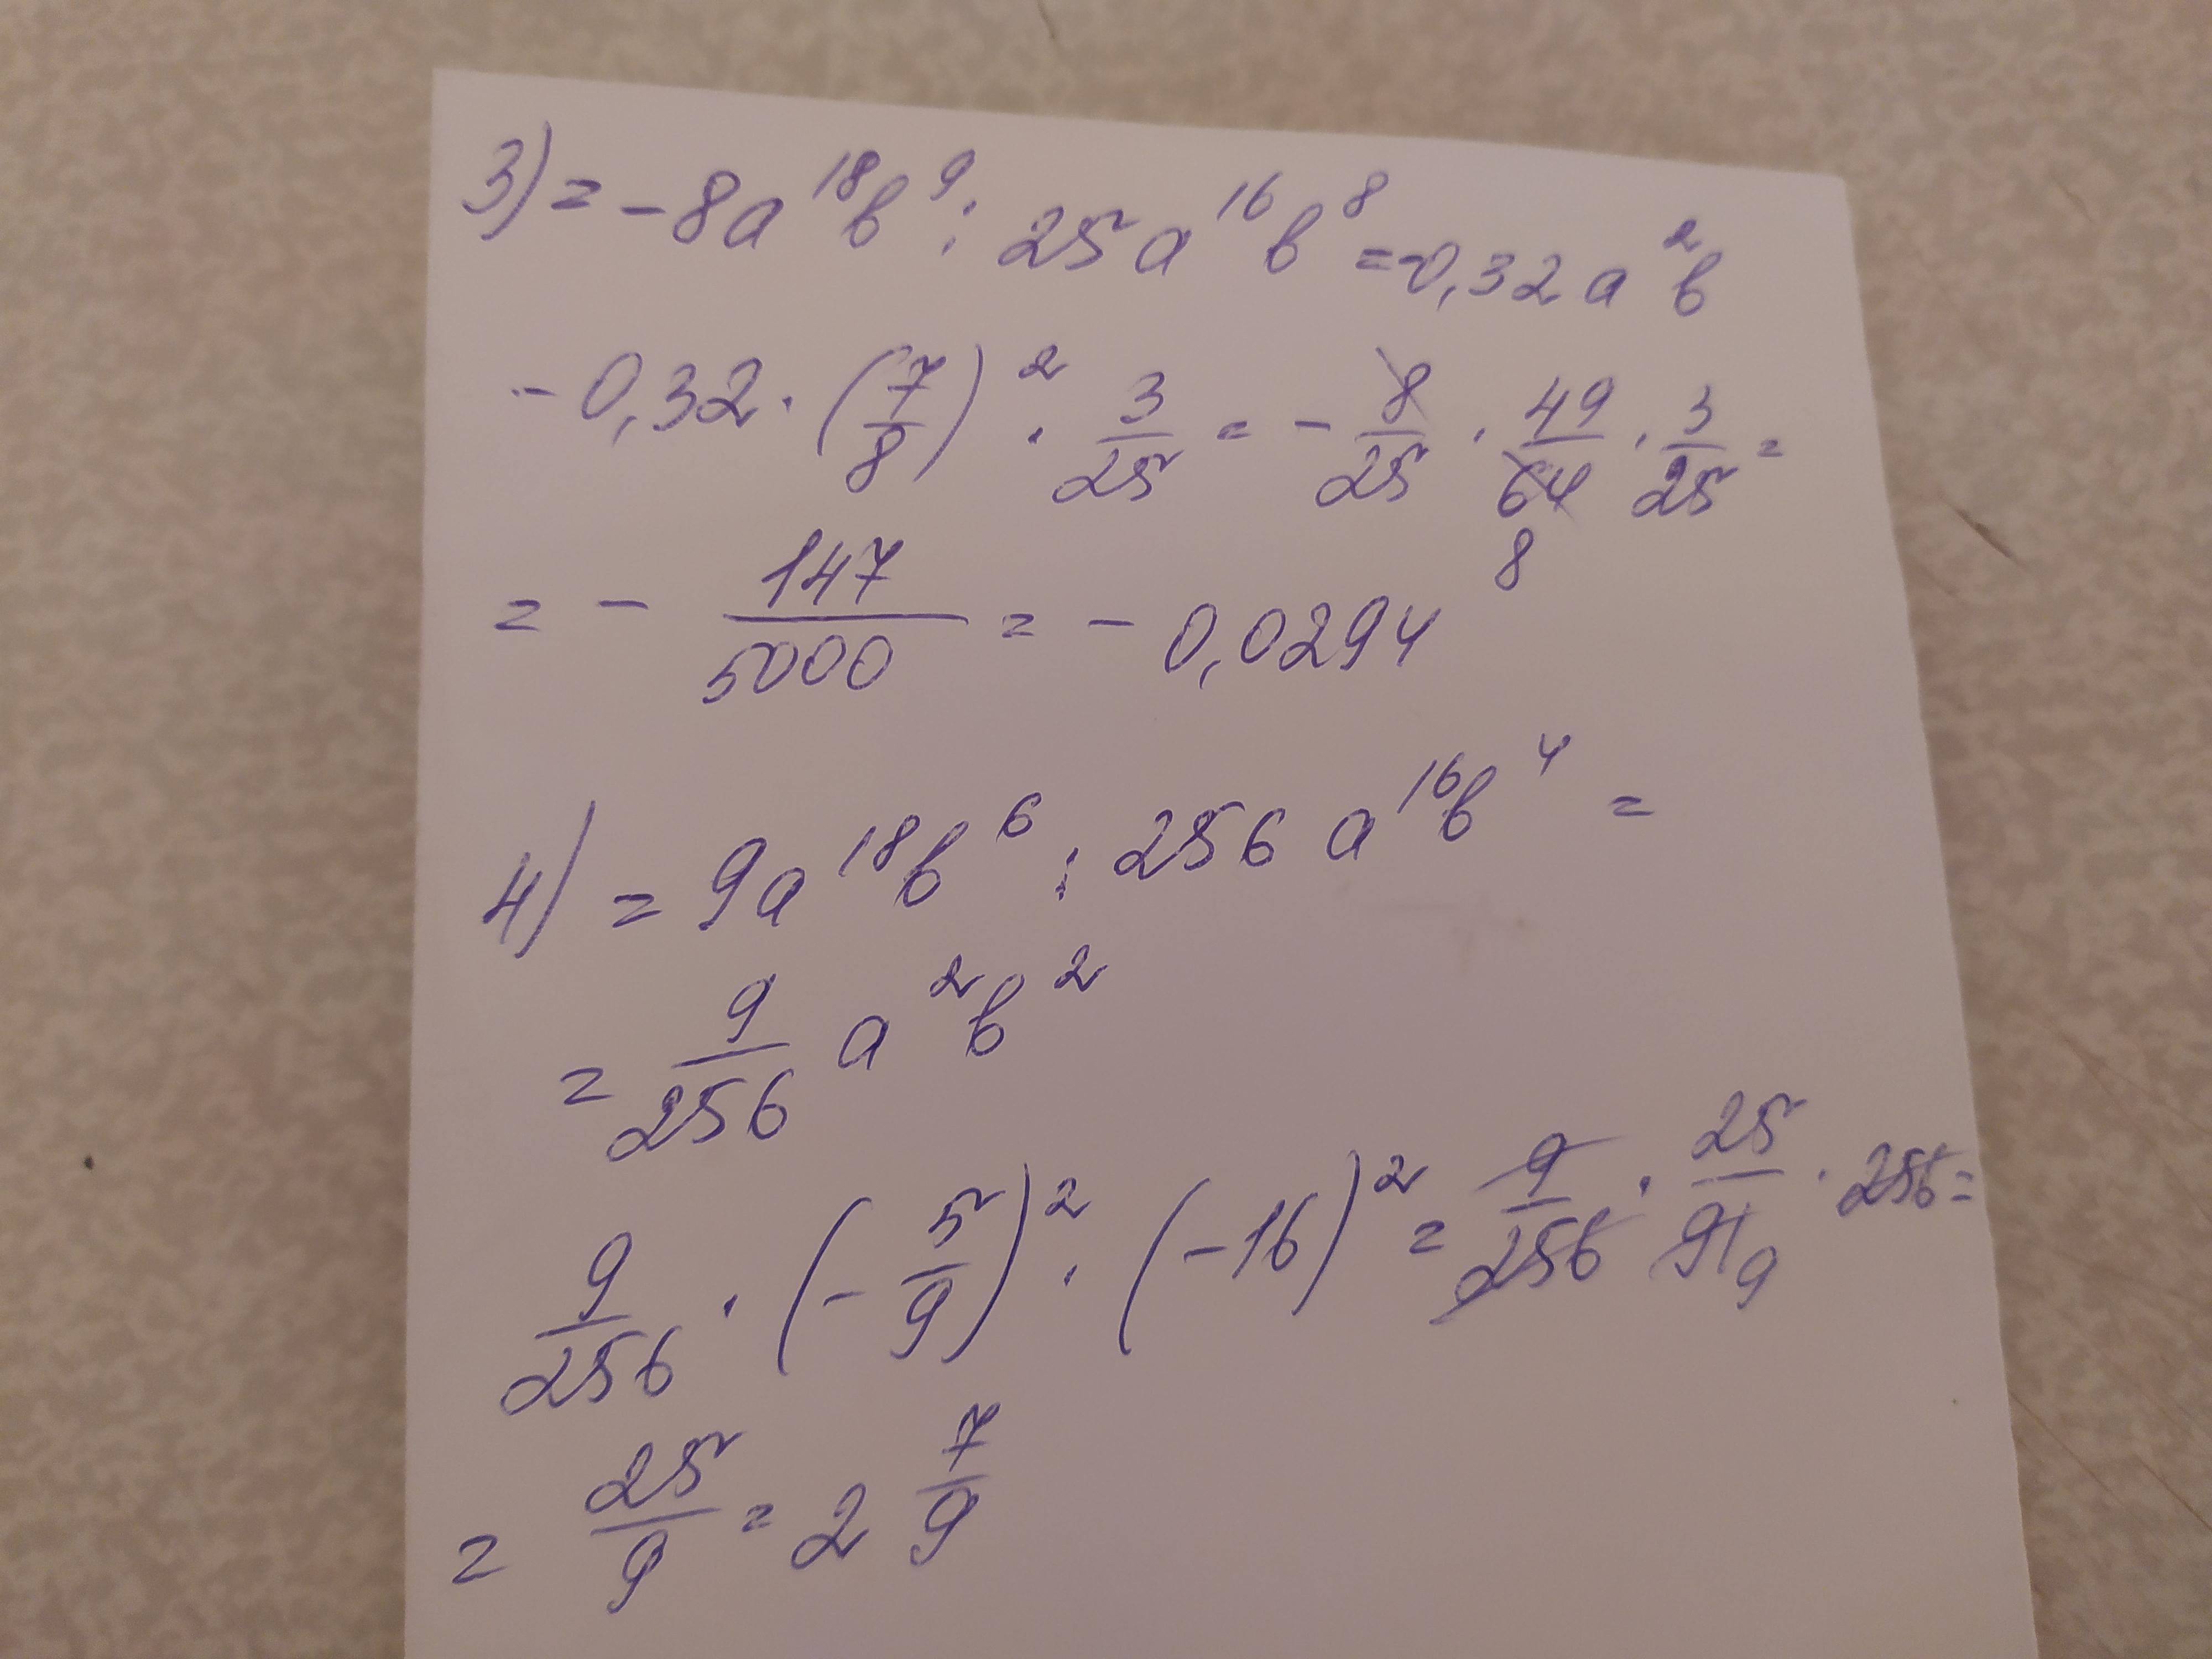 3) = -8a¹⁸b⁹ : 25a¹⁶b⁸ = -0,32a²b
-0,32 · (7/8)² · 3/25 = - 8/25 · 49/64 · 3/25 =
8
= - 147/5000 = - 0,0294
4) = 9a¹⁸b⁶ : 256a¹⁶b⁴ =
= 9/256 a²b²
9/256 · (-5/9)² · (-16)² = 9/256 · 25/81 · 256 =
9
= 25/9 = 2 7/9